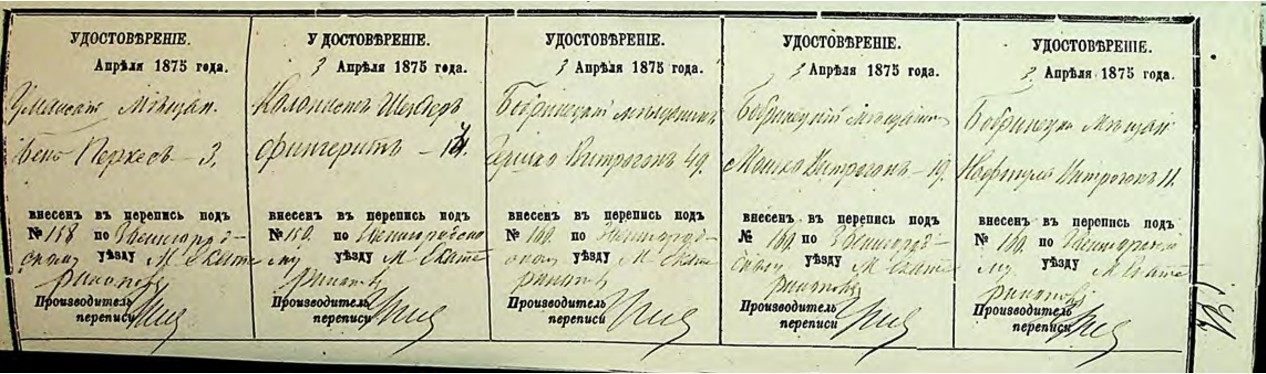 УДОСТОВѢРЕНІЕ.
Апрѣля 1875 года.
Уманскій Мѣщан.
Перкесъ — 3.
внесенъ въ перепись подъ
№ 158 по Звенигород-
скому уѣзду М. Екате
ринополь
Производитель
переписи
УДОСТОВѢРЕНІЕ.
3 Апрѣля 1875 года.
Колонистъ
Фингеритъ —
внесенъ въ перепись подъ
№ 159. по Звенигородско
му уѣзду М Екате
ринополь
Производитель
переписи
УДОСТОВѢРЕНІЕ.
3 Апрѣля 1875 года.
Бобринецкій мѣщанинъ
Гершко Витрогонъ 49.
внесенъ въ перепись подъ
№ 160. по Звенигород-
скому уѣзду М Екате
ринополь
Производитель
переписи
УДОСТОВѢРЕНІЕ.
3 Апрѣля 1875 года.
Бобринецкій мѣщанин
Мошко Витрогонъ — 19.
внесенъ въ перепись подъ
№ 160. по Звенигород-
скому уѣзду М Екате
ринополь
Производитель
переписи
УДОСТОВѢРЕНІЕ.
3 Апрѣля 1875 года.
Бобринецкі Мѣщан
Нафтула Витрогонъ 11.
внесенъ въ перепись подъ
№ 160. по Звенигородско
му уѣзду М Екате
ринополь
Производитель
переписи